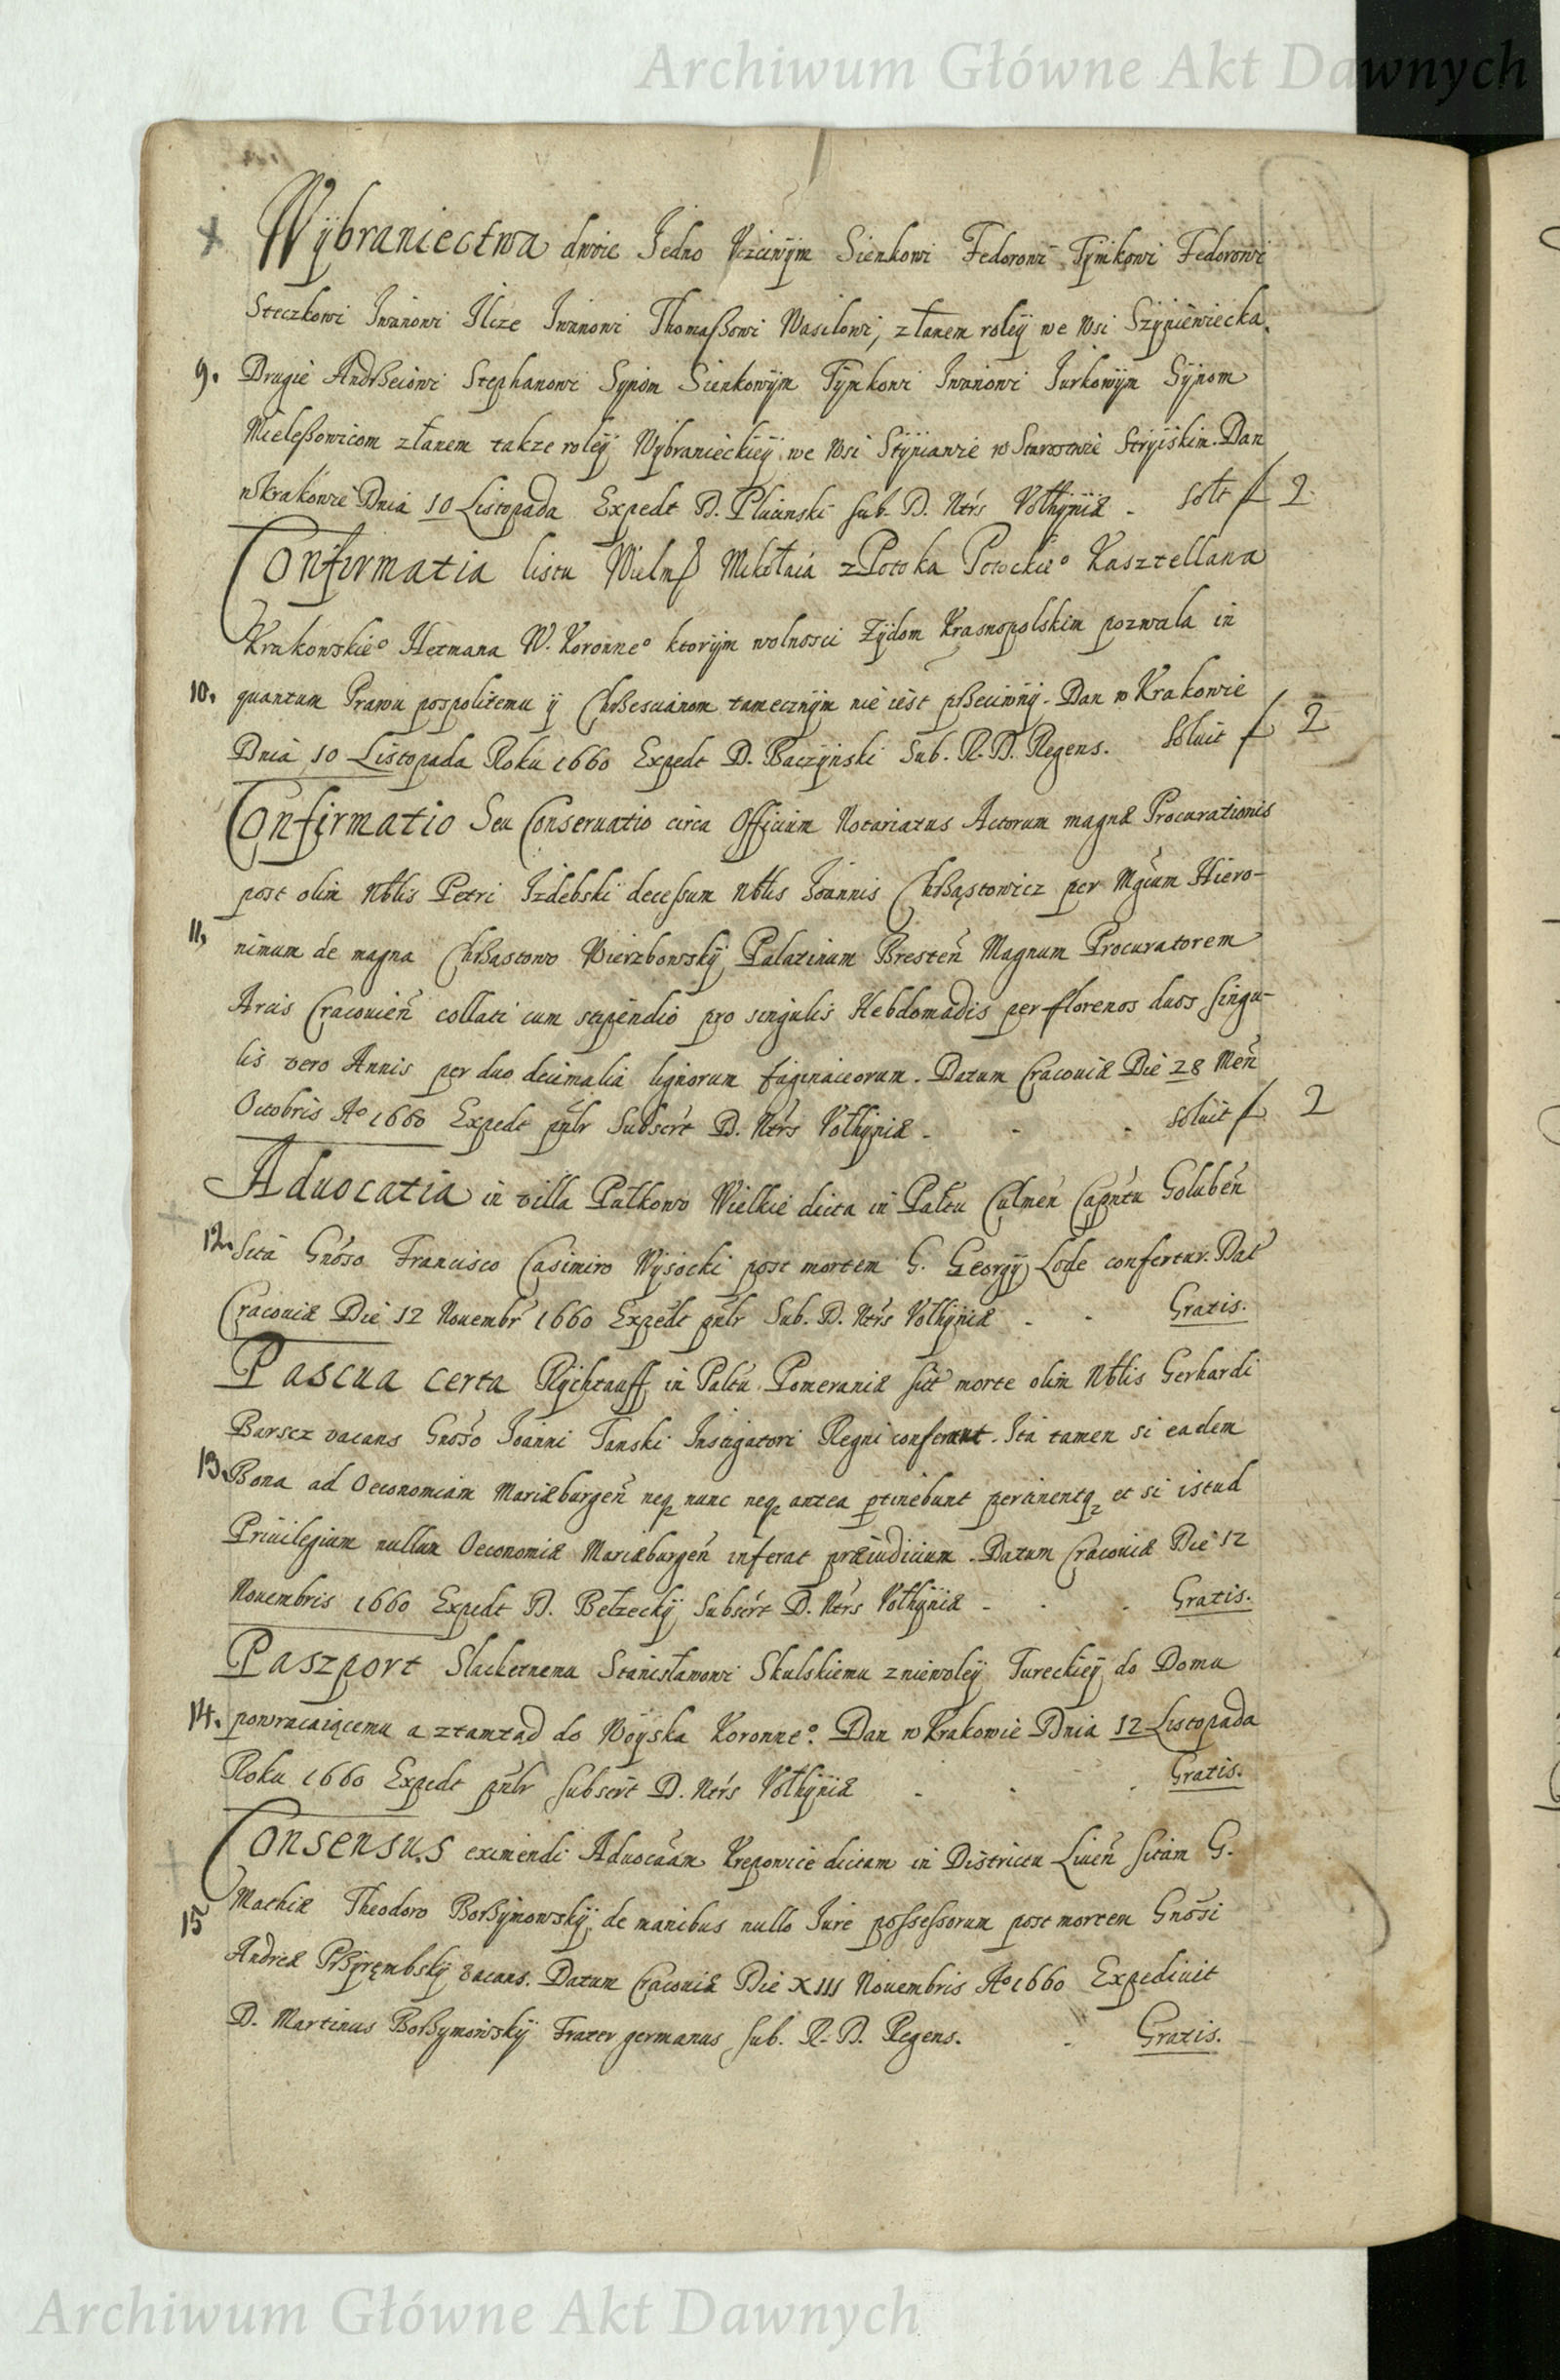 Archiwum Główne Akt Dawnych
Wybraniectwa dwie Jedno Uczciwym Sienkowi Fedorowi Tymkowi Fedorowi
Steczkowi Iwanowi Ilcze Iwanowi Thomaßowi Wasilowi, z łanem roley we Wsi
9. Drugie Andrßeiowi Stephanowi Synom Sienkowym Tymkowi Iwanowi Jurkowym Synom
Mieleßowicom z łanem takze roley Wybranieckiey we Wsi Stynianie w Starostwie Stryiskim. Dan
w Krakowie Dnia 10 Listopada Expedt D. Plucinski sub. D. Ntrs Vołhyniæ - Solt f 2
Confirmatia listu Wielmß Mikołaia z Potoka Potockieº Kasztellana
Krakowskieº Hetmana W. Koronneº ktorym wolnosci Zydom Krasnopolskim pozwala in
10. quantum Prawu pospolitemu y Chrßescianom tamecznym nie iest prßeciwny. Dan w Krakowie
Dnia 10 Listopada Roku 1660 Expedt D. Baczynski Sub. R. D. Regens. Soluit f 2
Confirmatio Seu Conseruatio circa Officium Notariatus Actorum magnæ Procurationis
post olim Nblis Petri Izdebski decessum Nblis Joannis Chrßąstowicz per Mgcum Hiero-
11, nimum de magna Chrßąstowo Wierzbowsky Palatinum Bresten Magnum Procuratorem
Arcis Cracouien collati cum stipendio pro singulis Hebdomadis per florenos duos singu-
lis vero Annis per duo decimalia lignorum faginaceorum. Datum Cracouiæ Die 28 Men
Octobris Aº 1660 Expedt pnlr Subscrt D. Ntrs Vołhyniæ - - - Soluit f 2
Aduocatia in villa Pułkowo Wielkie dicta in Paltu Culmen Capntu Goluben
12. Sita Gnoso Francisco Casimiro Wysocki post mortem G. Georgy Lode confertur. Dat
Cracouiæ Die 12 Nouembr 1660 Expedt pnlr Sub. D. Ntrs Vołhyniæ - - Gratis.
Pascua certa Rychtauff in Paltu Pomeraniæ sit morte olim Nblis Gerhardi
vacans Gnoso Joanni Tanski Instigatori Regni conferunt. Ita tamen si eadem
13. Bona ad Oeconomiam Mariæburgen neq nunc neq antea ptinebunt pertinentq et si istud
Priuilegium nullum Oeconomiæ Mariæburgen inferat præiudicium. Datum Cracouiæ Die 12
Nouembris 1660 Expedt D. Bełzecky Subscrt D. Ntrs Vołhyniæ - - - Gratis.
Paszport Slachetnemu Stanisławowi Skulskiemu z niewoley Tureckiey do Domu
14. powracaiącemu a ztamtąd do Woyska Koronneº. Dan w Krakowie Dnia 12 Listopada
Roku 1660 Expedt pnlr Subscrt D. Ntrs Vołhyniæ - - - Gratis.
Consensus eximendi Aduocãam Krepowice dictam in Districtu Liuen sitam G.
15 Mathiæ Theodoro Borßymowsky de manibus nullo Jure possessorum post mortem Gnosi
Andreæ Prßyrembsky vacans. Datum Cracouiæ Die XIII Nouembris Aº 1660 Expediuit
D. Martinus Borßymowsky Frater germanus sub. R. D. Regens. - Gratis.
Archiwum Główne Akt Dawnych